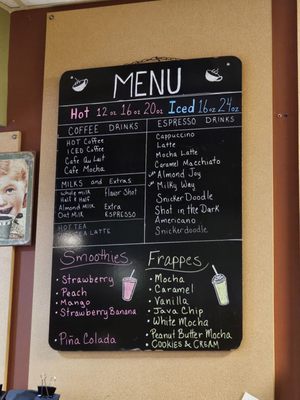 MENU
Hot 12oz 16oz 20oz Iced 16oz 24oz
COFFEE DRINKS
HOT Coffee
ICED Coffee
Cafe Au Lait
Cafe Mocha
MILKS and Extras
Whole milk Flavor Shot
Half & Half
Almond Milk Extra
Oat Milk ESPRESSO
HOT TEA
TEA LATTE
ESPRESSO DRINKS
Cappuccino
Latte
Mocha Latte
Caramel Macchiato
Almond Joy
Milky Way
Snicker Doodle
Shot in the Dark
Americano
Snickerdoodle
Smoothies
• Strawberry
• Peach
• Mango
• Strawberry Banana
• Piña Colada
Frappes
• Mocha
• Caramel
• Vanilla
• Java Chip
• White Mocha
• Peanut Butter Mocha
• COOKIES & CREAM